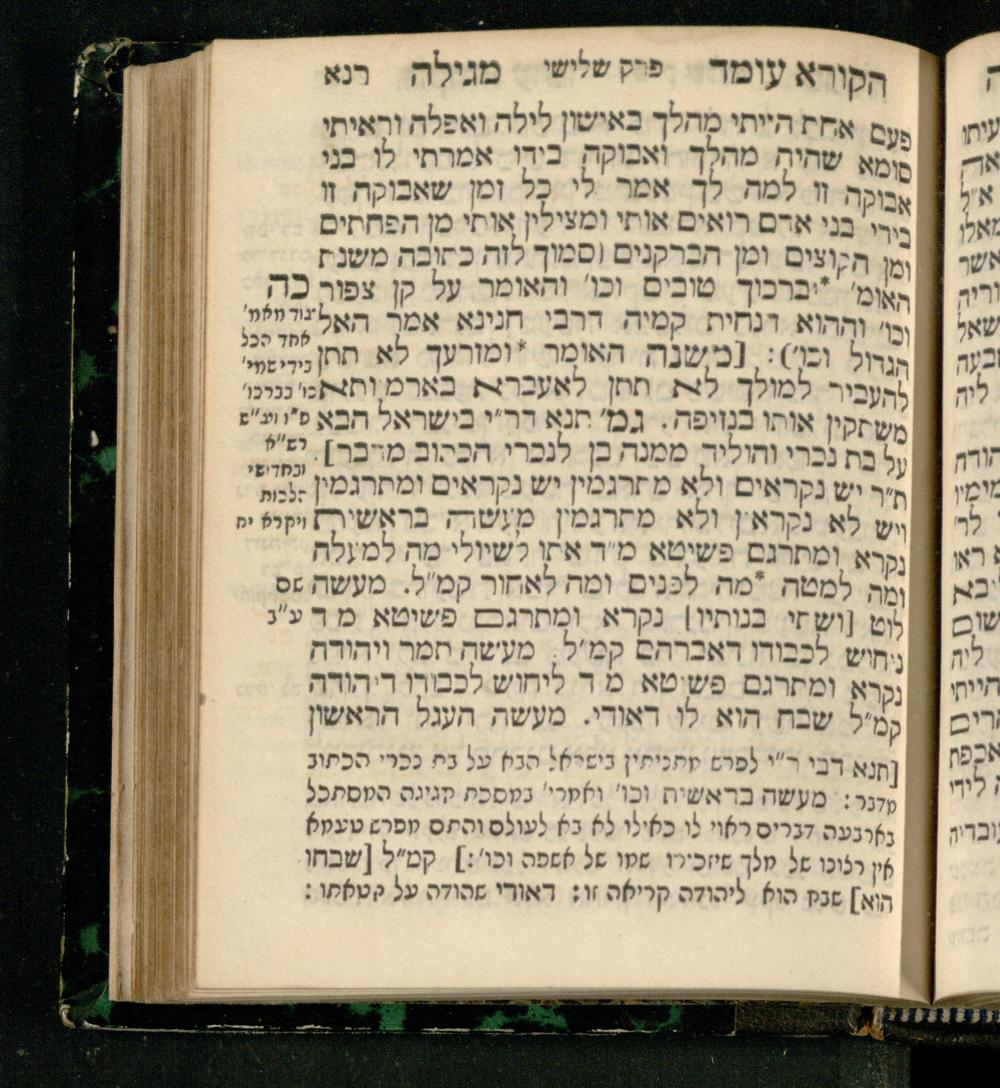 הקורא עומד פרק שלישי מגילה רנא
פעם אחת הייתי מהלך באישון לילה ואפלה וראיתי
סומא שהיה מהלך ואבוקה בידו אמרתי לו בני
אבוקה זו למה לך אמר לי כל זמן שאבוקה זו
בידי בני אדם רואים אותי ומצילין אותי מן הפחתים
ומן הקוצים ומן הברקנים (סמוך לזה כתובה משנת
האומ׳ *יברכוך טובים וכו׳ והאומר על קן צפור
וכו׳ וההוא דנחית קמיה דרבי חנינא אמר האל
הגדול וכו׳): [משנה האומר *ומזרעך לא תתן
להעביר למולך לא תתן לאעברא בארמיותא
משתקין אותו בנזיפה. גמ׳ תנא דר״י בישראל הבא
על בת נכרי והוליד ממנה בן לנכרי הכתוב מדבר].
ת״ר יש נקראים ולא מתרגמין יש נקראים ומתרגמין
ויש לא נקראין ולא מתרגמין מעשה בראשית
נקרא ומתרגם פשיטא מ״ד אתו לשיולי מה למעלה
ומה למטה *מה לפנים ומה לאחור קמ״ל. מעשה
לוט [ושתי בנותיו] נקרא ומתרגם פשיטא מ ד
ניחוש לכבודו דאברהם קמ״ל. מעשה תמר ויהודה
נקרא ומתרגם פשיטא מ ד ליחוש לכבודו דיהודה
קמ״ל שבח הוא לו דאודי. מעשה העגל הראשון
כה
אחד הכל
כו׳ בברכו׳
רש״א
ובחדושי
הלכות
ויקרא יח
שס
ע״ב
[תנא דבי ר״י לפרש מתניתין בישראל הבא על בת נכרי הכתוב
מדבר: מעשה בראשית וכו׳ ואמרי׳ במסכת חגיגה המסתכל
בארבעה דברים ראוי לו כאילו לא בא לעולם והתם מפרש טעמא
אין רצונו של מלך שיזכירו שמו של אשפה וכו׳:] קמ״ל [שבחו
הוא] שבח הוא ליהודה קריאה זו: דאודי שהודה על חטאתו: